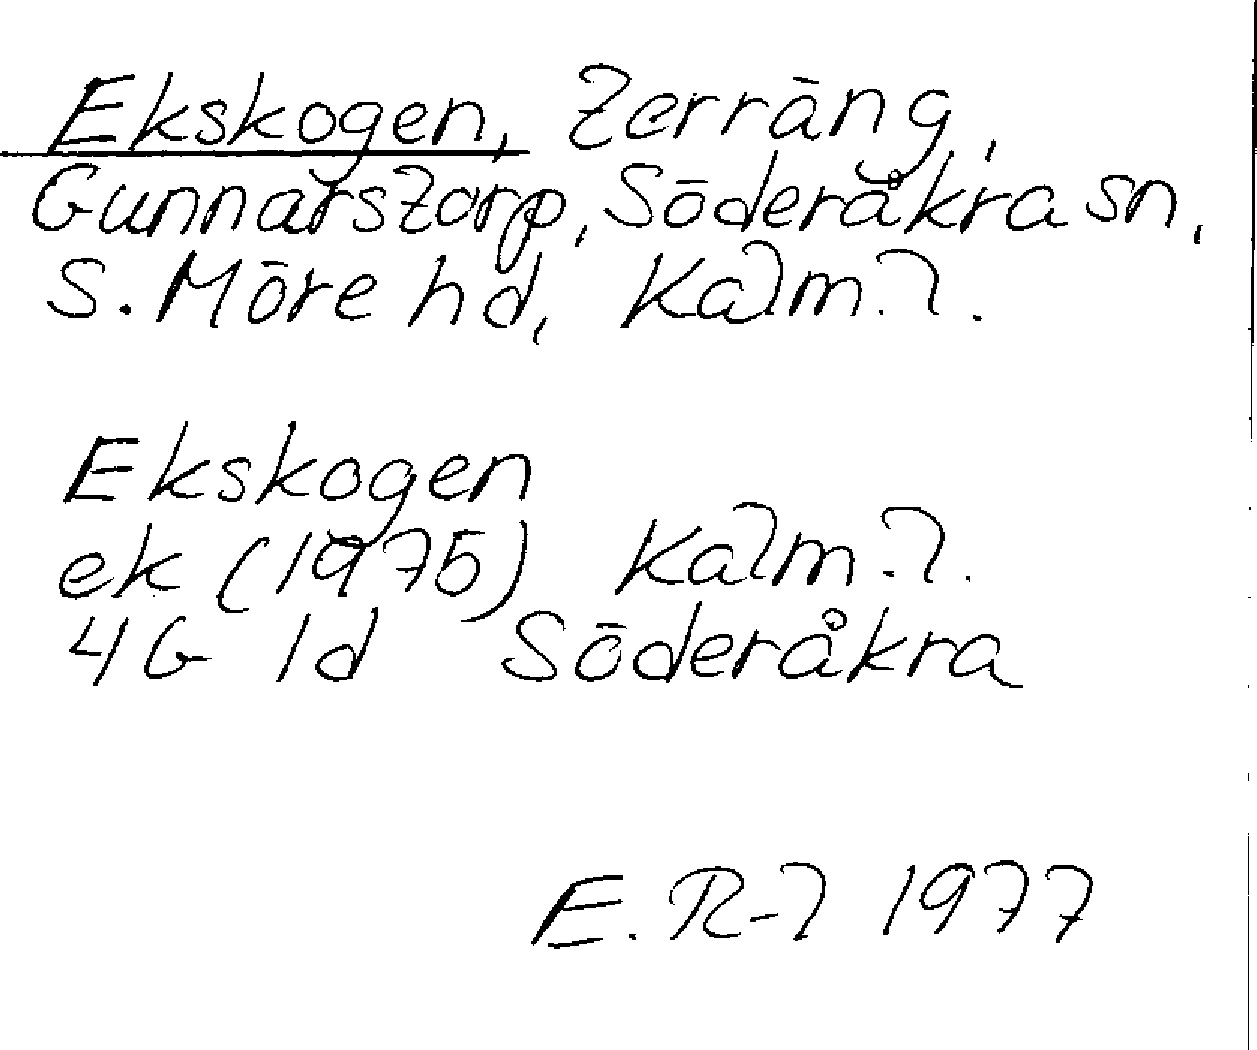 Ekskogen, terräng,
Gunnarstorp, Söderåkra sn,
S. Möre hd, Kalm. l.
Ekskogen
ek (1975) Kalm. l.
4G 1d Söderåkra
E. R-l 1977